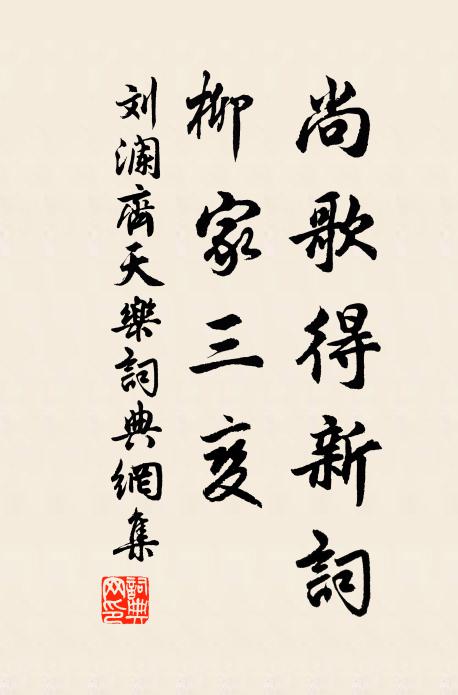 尚歌得新詞
柳家三变
刘澜齊天樂詞典網集
詞典网印